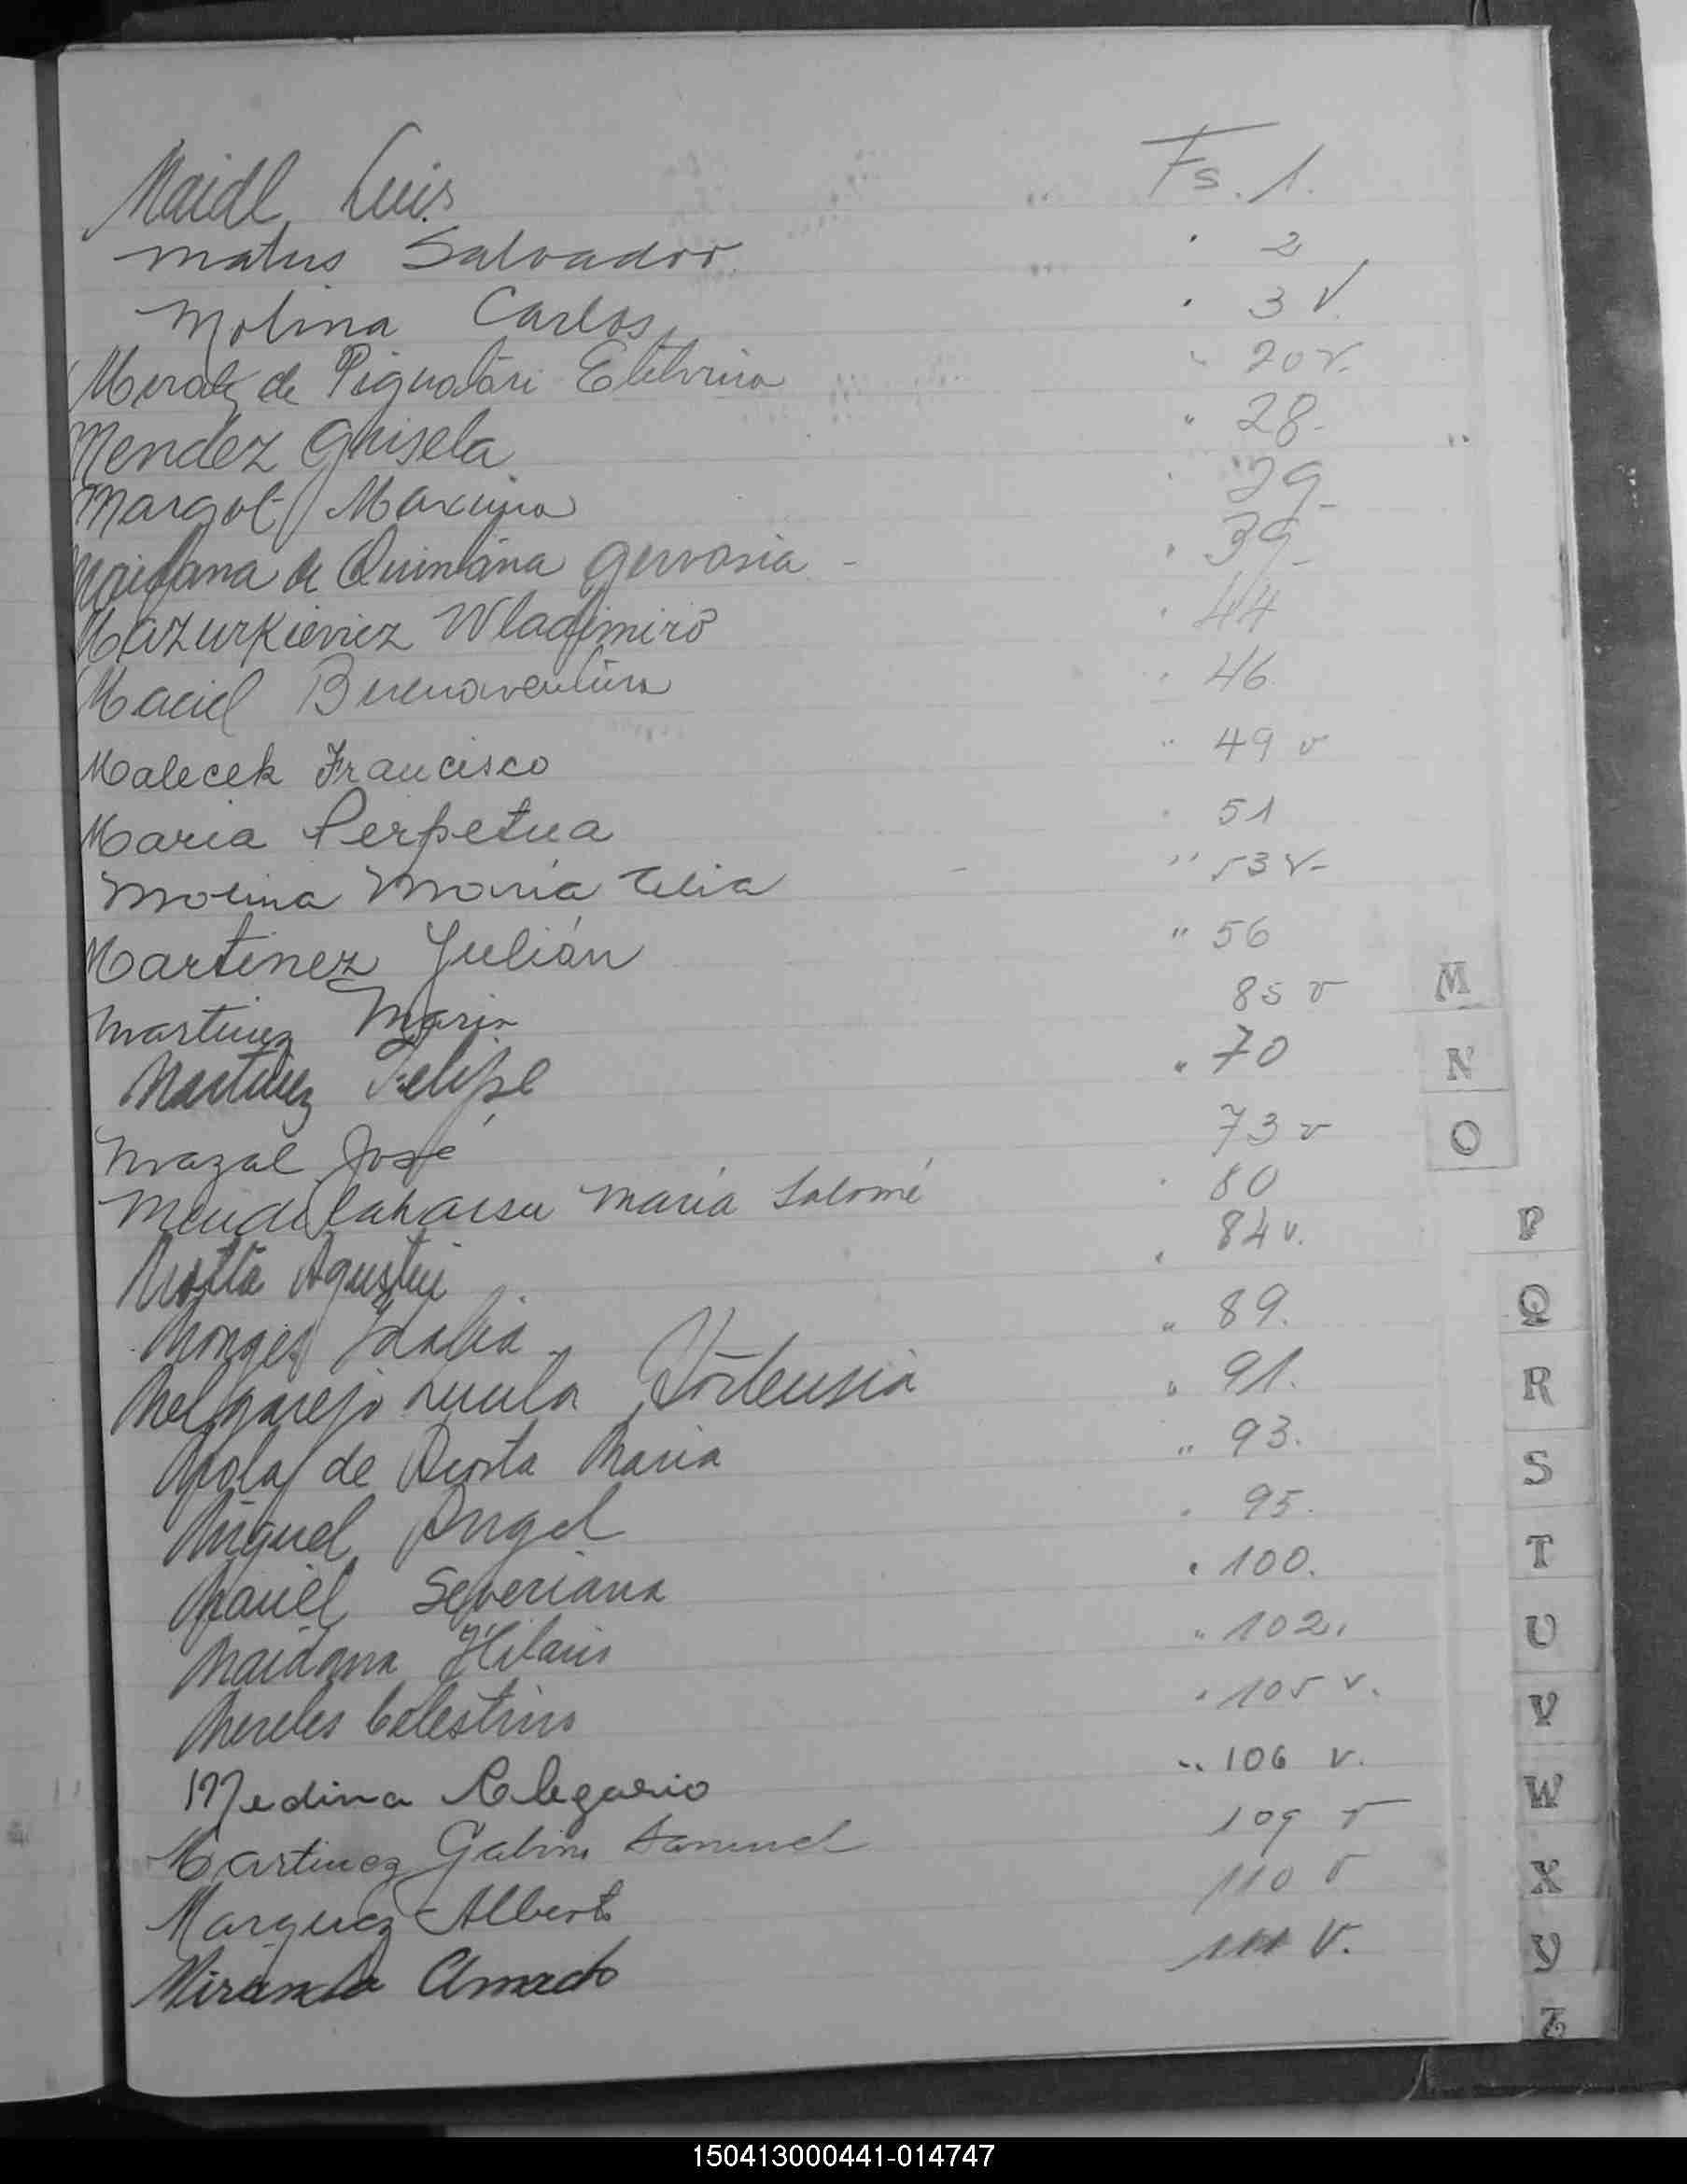 Maidl Luis Fs. 1.
Matus Salvador. " 2
Molina Carlos, " 3 v.
de Pignatari " 20 v.
Mendez Ghisela " 28-
Margot Maxima " 29-
de Quintana Gervasia - " 39-
Mazurkievicz Wladimiro " 44
Maciel Buenaventura " 46
Malecek Francisco " 49 v
Maria Perpetua " 51
Molina Maria Celia " 53 v-
Martinez Julián " 56
Martinez Maria 85 v
Martinez Felipe " 70
Mazal José 73 v
Mendilaharsu Maria Salomé " 80
Motta Agustin " 84 v.
Monges Idalia " 89.
Melgarejo Lucila Hortensia " 91.
Mola de Acosta Maria " 93.
Miguel Angel " 95.
Maciel Severiana " 100.
Maidana Hilario " 102.
Mereles Celestino " 105 v.
Medina Olegario " 106 v.
Martinez Galino Samuel 109 v
Marquez Alberto 110 v
Miranda Amado 111 v.
M
N
O
P
Q
R
S
T
U
V
W
X
Y
Z
150413000441-014747